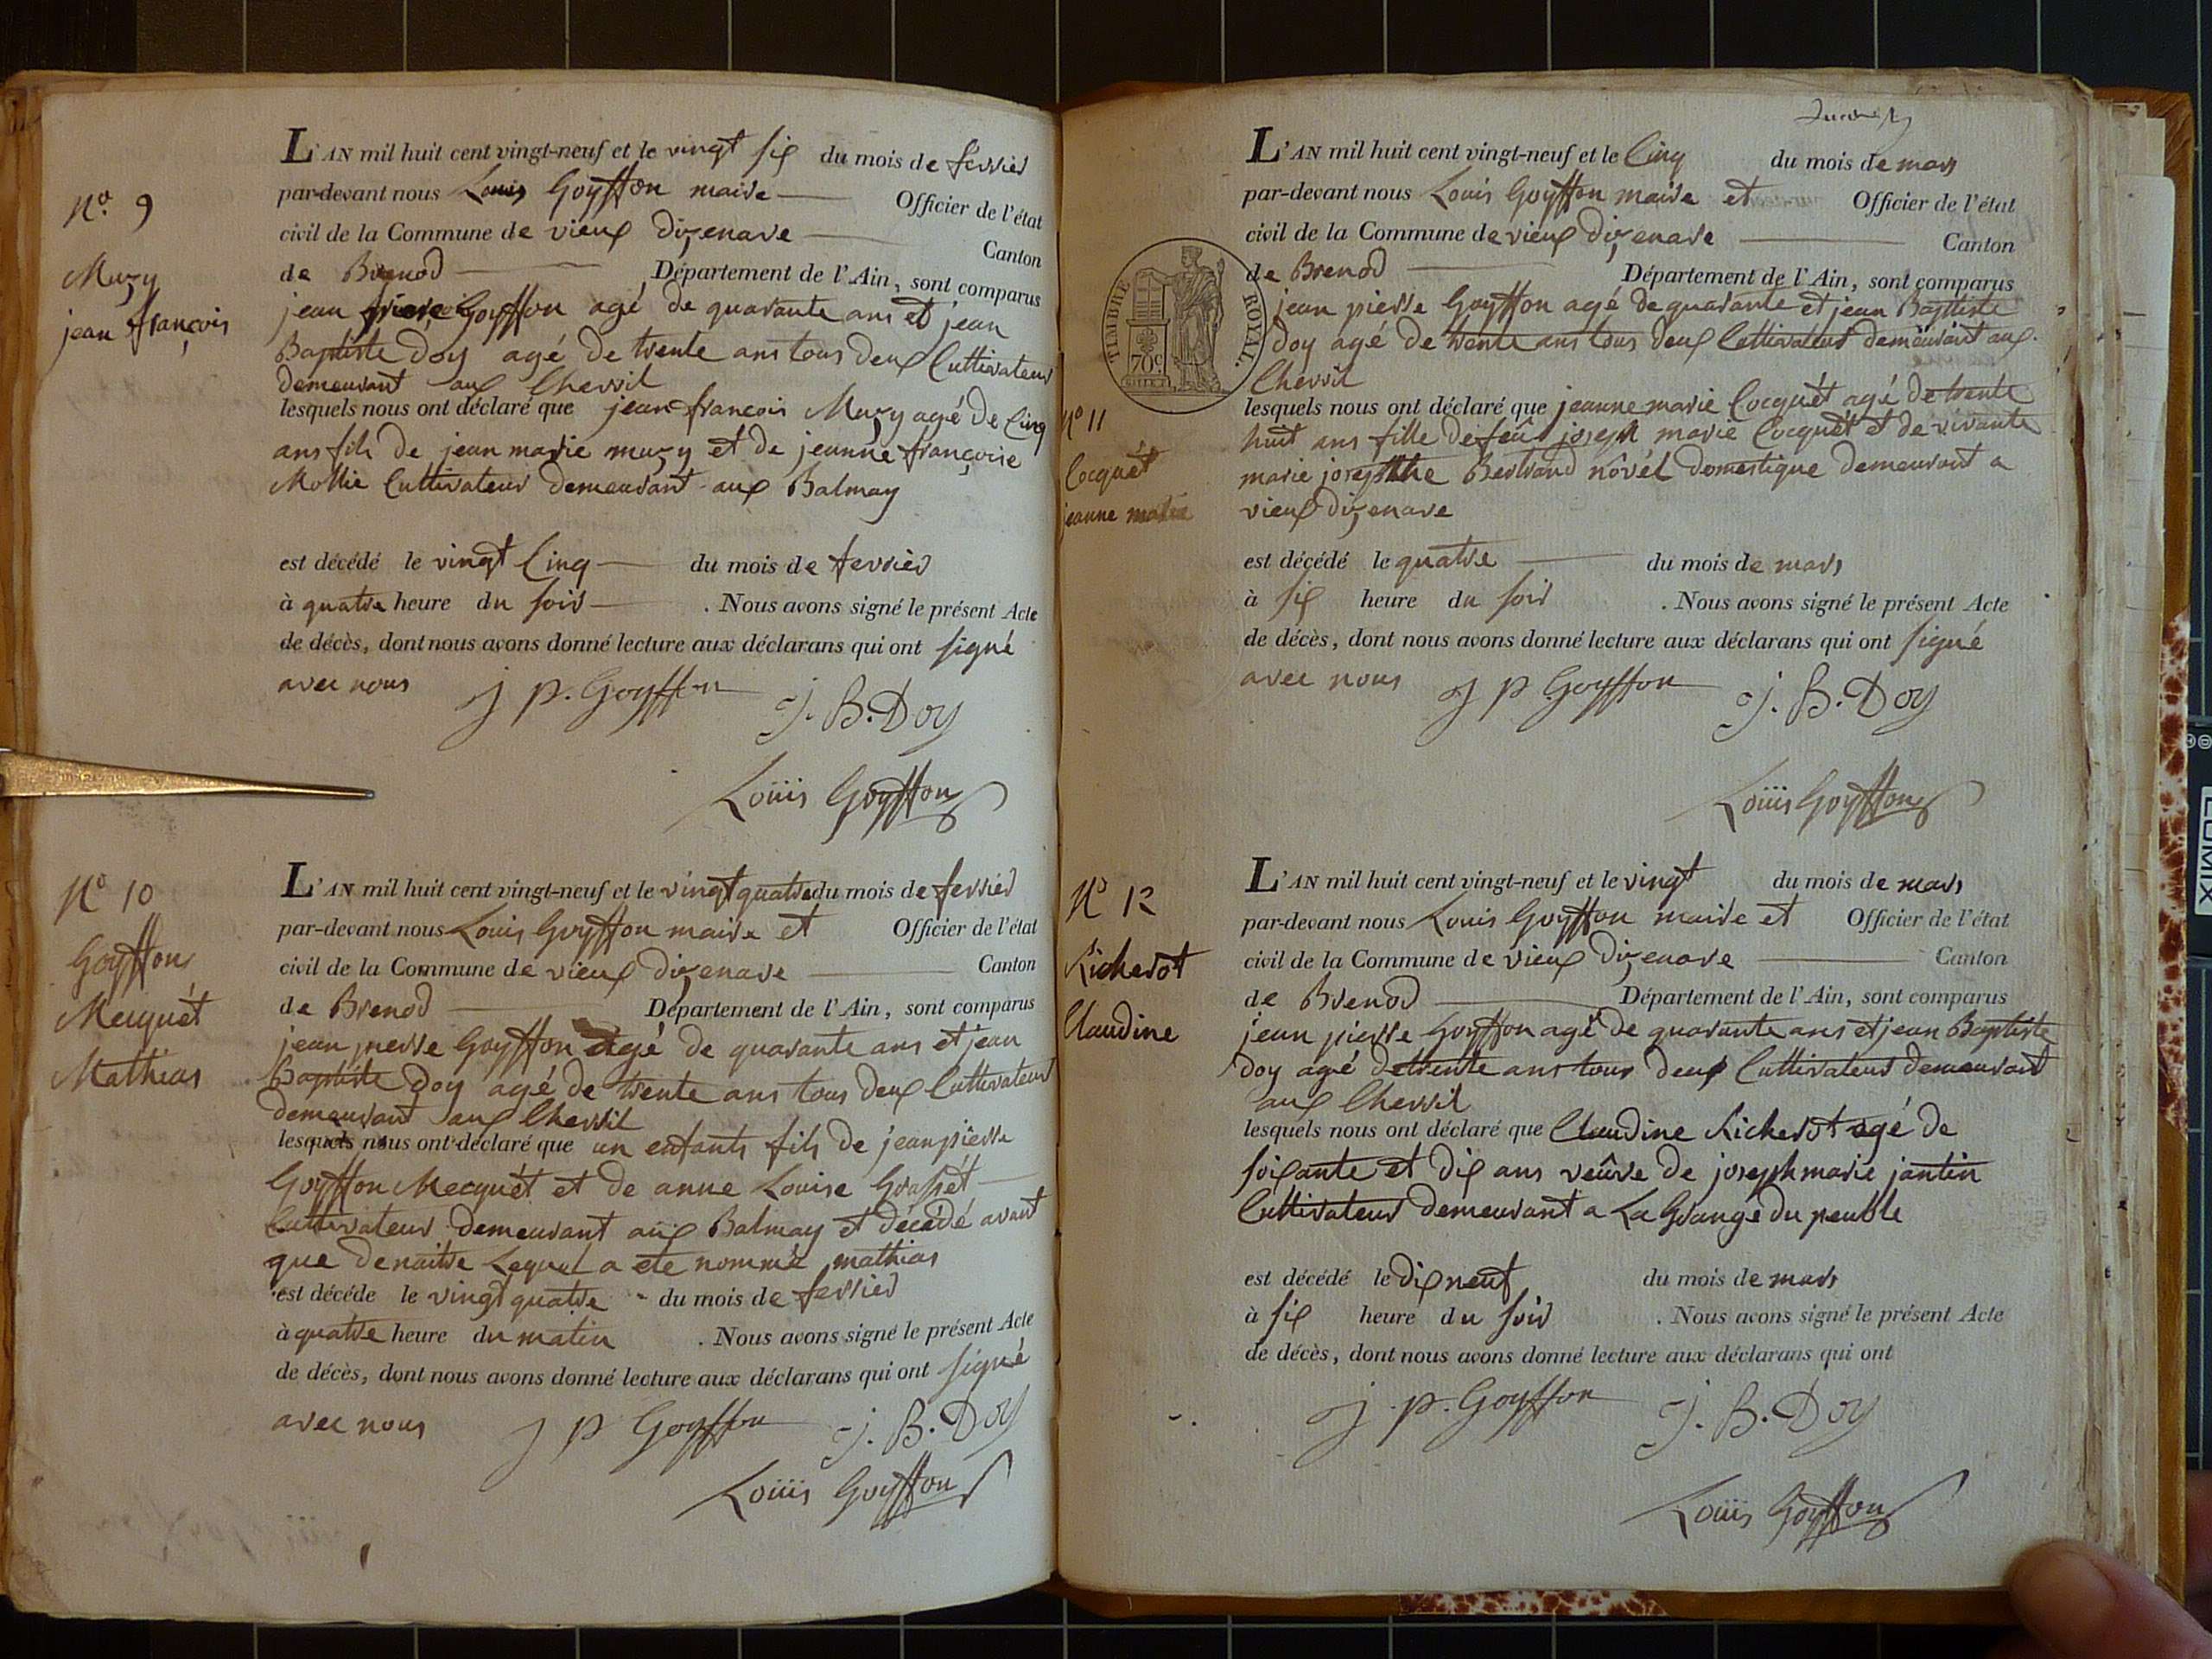 N.o 9
Muzy
jean françois
L'AN mil huit cent vingt-neuf et le vingt six du mois de fevrier
par-devant nous Louis Goyffon maire Officier de l'état
civil de la Commune de vieux dizenave Canton
de Brenod Département de l'Ain, sont comparus
jean pierre Goyffon agé de quarante ans et jean
Baptiste Doy agé de trente ans tous deux Cultivateurs
demeurant aux Chevril
lesquels nous ont déclaré que jean françois Muzy agé de Cinq
ans fils de jean marie muzy et de jeanne françoise
Mollie Cultivateur demeurant aux Balmay
est décédé le vingt Cinq du mois de fevrier
à quatre heure du soir . Nous avons signé le présent Acte
de décès, dont nous avons donné lecture aux déclarans qui ont signé
avec nous J P. Goyffon J. B. Doy
Loüis Goyffon
N.o 10
Goyffon
Mecquét
Mathias
L'AN mil huit cent vingt-neuf et le vingt quatre du mois de fevrier
par-devant nous Louis Goyffon maire et Officier de l'état
civil de la Commune de vieux dizenave Canton
de Brenod Département de l'Ain, sont comparus
jean pierre Goyffon agé de quarante ans et jean
Baptiste Doy agé de trente ans tous deux Cultivateurs
demeurant aux Chevril
lesquels nous ont déclaré que un enfants fils de jean pierre
Goyffon Mecquét et de anne Louise Grasset
Cultivateur demeurant aux Balmay et décédé avant
que de naitre Lequel a ete nommé mathias
est décédé le vingt quatre du mois de fevrier
à quatre heure du matin . Nous avons signé le présent Acte
de décès, dont nous avons donné lecture aux déclarans qui ont signé
avec nous J P Goyffon J. B. Doy
Loüis Goyffon
L'AN mil huit cent vingt-neuf et le Cinq du mois de mars
par-devant nous Louis Goyffon maire et Officier de l'état
civil de la Commune de vieux dizenave Canton
de Brenod Département de l'Ain, sont comparus
TIMBRE ROYAL.
70c
jean pierre Goyffon agé de quarante et jean Baptiste
Doy agé de trente ans tous deux Cultivateurs demeurant aux
Chevril
N.o 11
Cocquét
jeanne marie
lesquels nous ont déclaré que jeanne marie Cocquét agé de trente
huit ans fille de feû joseph marie Cocquét et de vivante
marie josephthe Bertrand nôvél domestique demeurant a
vieux dizenave
est décédé le quatre du mois de mars
à six heure du soir . Nous avons signé le présent Acte
de décès, dont nous avons donné lecture aux déclarans qui ont signé
avec nous J P Goyffon J. B. Doy
Loüis Goyffon
N.o 12
Richerot
Claudine
L'AN mil huit cent vingt-neuf et le vingt du mois de mars
par-devant nous Louis Goyffon maire et Officier de l'état
civil de la Commune de vieux dizenave Canton
de Brenod Département de l'Ain, sont comparus
jean pierre Goyffon agé de quarante ans et jean Baptiste
Doy agé de trente ans tous deux Cultivateurs demeurant
aux Chevril
lesquels nous ont déclaré que Claudine Richerot agé de
soixante et dix ans veûve de joseph marie jantin
Cultivateur demeurant a La Grange du peuble
est décédé le dix neuf du mois de mars
à six heure du soir . Nous avons signé le présent Acte
de décès, dont nous avons donné lecture aux déclarans qui ont
J. P. Goyffon J. B. Doy
Loüis Goyffon
LUMIX